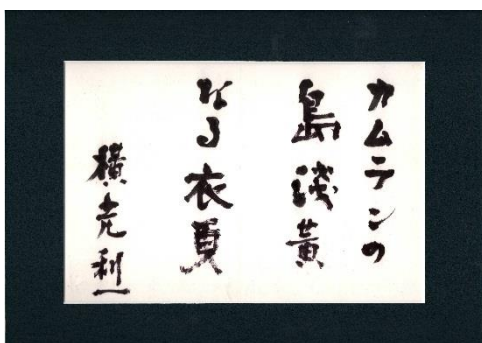 カムランの
島淺黄
なる衣更
横光利一